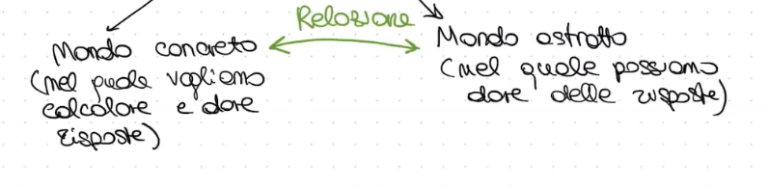 Relazione
Mondo concreto
(nel quale vogliamo
calcolare e dare
risposte)
Mondo astratto
(nel quale possiamo
dare delle risposte)